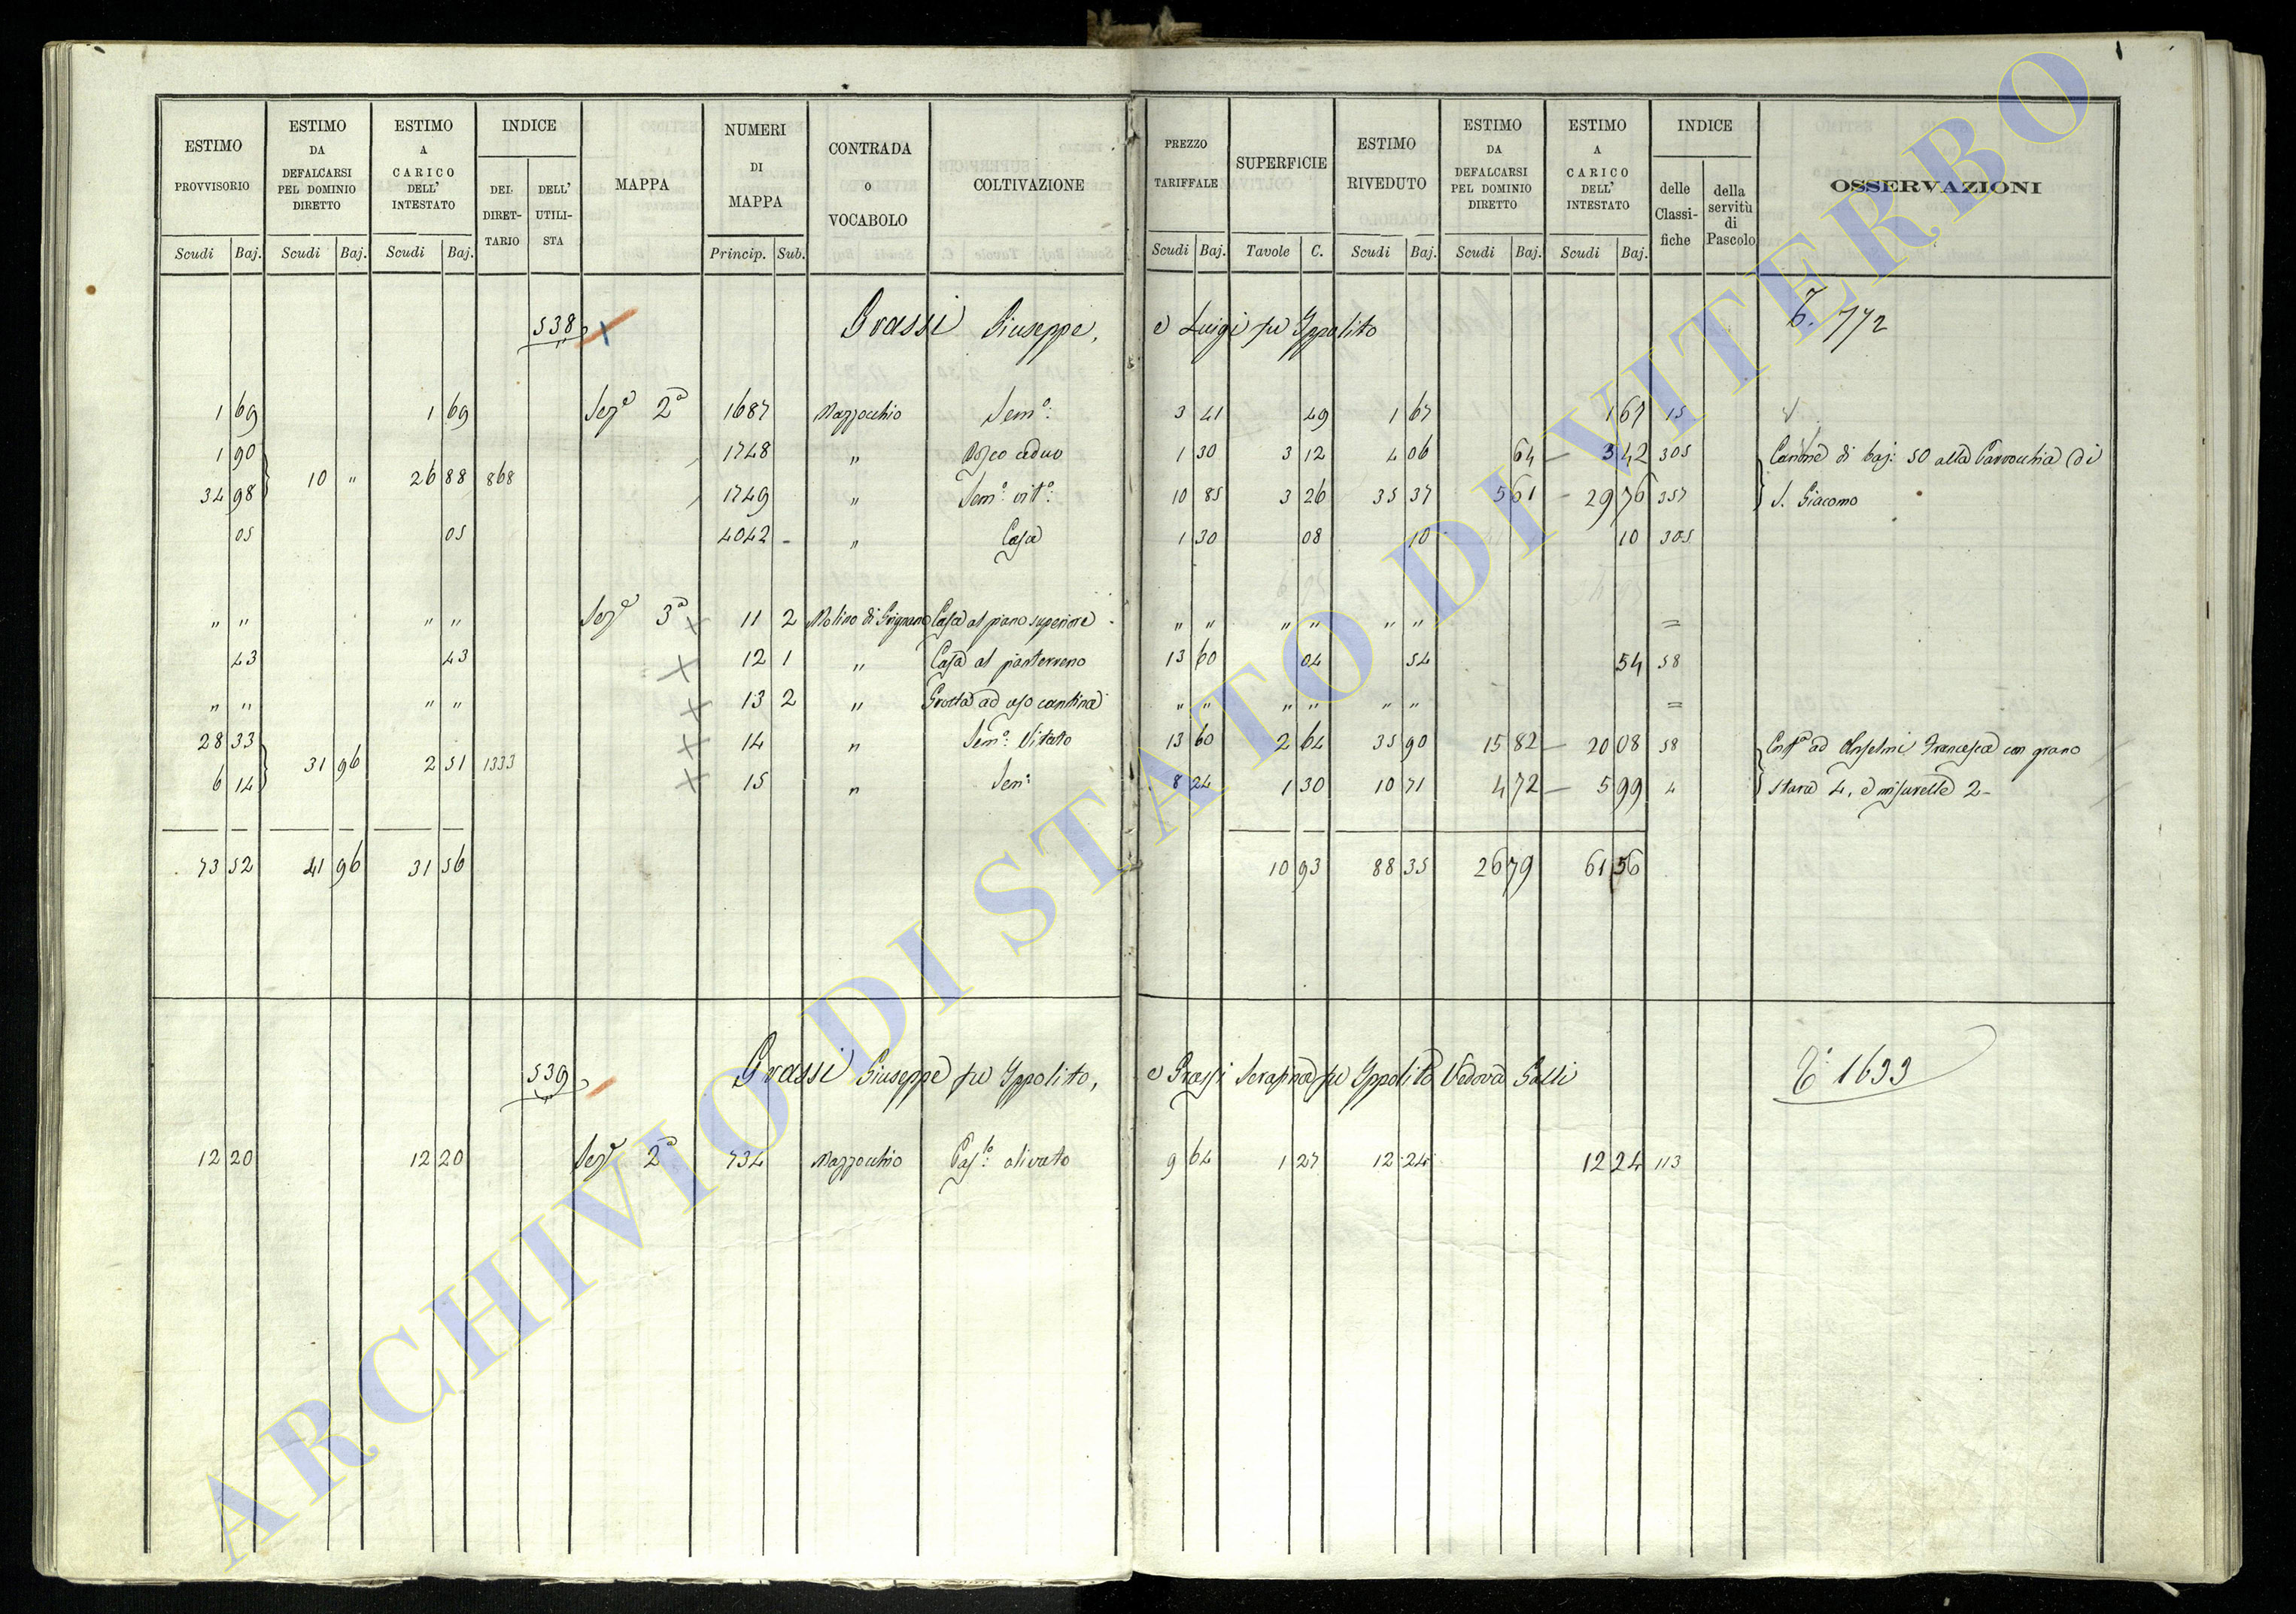 ESTIMO PROVVISORIO | ESTIMO DA DEFALCARSI PEL DOMINIO DIRETTO | ESTIMO A CARICO DELL' INTESTATO | INDICE | MAPPA | NUMERI DI MAPPA | CONTRADA O VOCABOLO | COLTIVAZIONE | PREZZO TARIFFALE | SUPERFICIE | ESTIMO RIVEDUTO | ESTIMO DA DEFALCARSI PEL DOMINIO DIRETTO | ESTIMO A CARICO DELL' INTESTATO | INDICE | OSSERVAZIONI
DEL DIRETTARIO | DELL' UTILISTA | delle Classifiche | della servitù di Pascolo
Scudi Baj. | Scudi Baj. | Scudi Baj. | Princip. Sub. | Scudi Baj. | Tavole C. | Scudi Baj. | Scudi Baj. | Scudi Baj.
538 Grassi Giuseppe, e Luigi fu Ippolito T. 772
1 69 | 1 69 | Sezᵉ 2ª | 1687 | Mazzocchio | Semᵒ: | 3 41 | 49 | 1 67 | 1 67 | 15
1 90 | 1748 | " | Bosco ceduo | 1 30 | 3 12 | 4 06 | 64 | 3 42 | 305 | Canone di baj: 50 alla Parrocchia di
10 " | 26 88 | 868
34 98 | 1749 | " | Semᵒ: vitᵒ: | 10 85 | 3 26 | 35 37 | 5 61 | 29 76 | 357 | S. Giacomo
05 | 05 | 4042 - | " | Casa | 1 30 | 08 | 10 | 10 | 305
" " | " " | Sezᵉ 3ª | 11 2 | Molino di Grignano | Casa al piano superiore | " " | " " | " " | =
43 | 43 | 12 1 | " | Casa al pianterreno | 13 60 | 04 | 54 | 54 | 58
" " | " " | 13 2 | " | Grotta ad uso cantina | " " | " " | " " | =
28 33 | 14 | " | Semᵒ: Vitato | 13 60 | 2 64 | 35 90 | 15 82 | 20 08 | 58 | ad Anselmi Francesca con grano
31 96 | 2 51 | 1333
6 14 | 15 | " | Semᵒ: | 8 24 | 1 30 | 10 71 | 4 72 | 5 99 | 4 | stara 4, e misurelle 2-
73 52 | 41 96 | 31 56 | 10 93 | 88 35 | 26 79 | 61 56
539 Grassi Giuseppe fu Ippolito, e Grassi Serafina fu Ippolito Vedova Galli T. 1633
12 20 | 12 20 | Sezᵉ 2ª | 734 | Mazzocchio | Pasᵒ: olivato | 9 64 | 1 27 | 12 24 | 12 24 | 113
ARCHIVIO DI STATO DI VITERBO